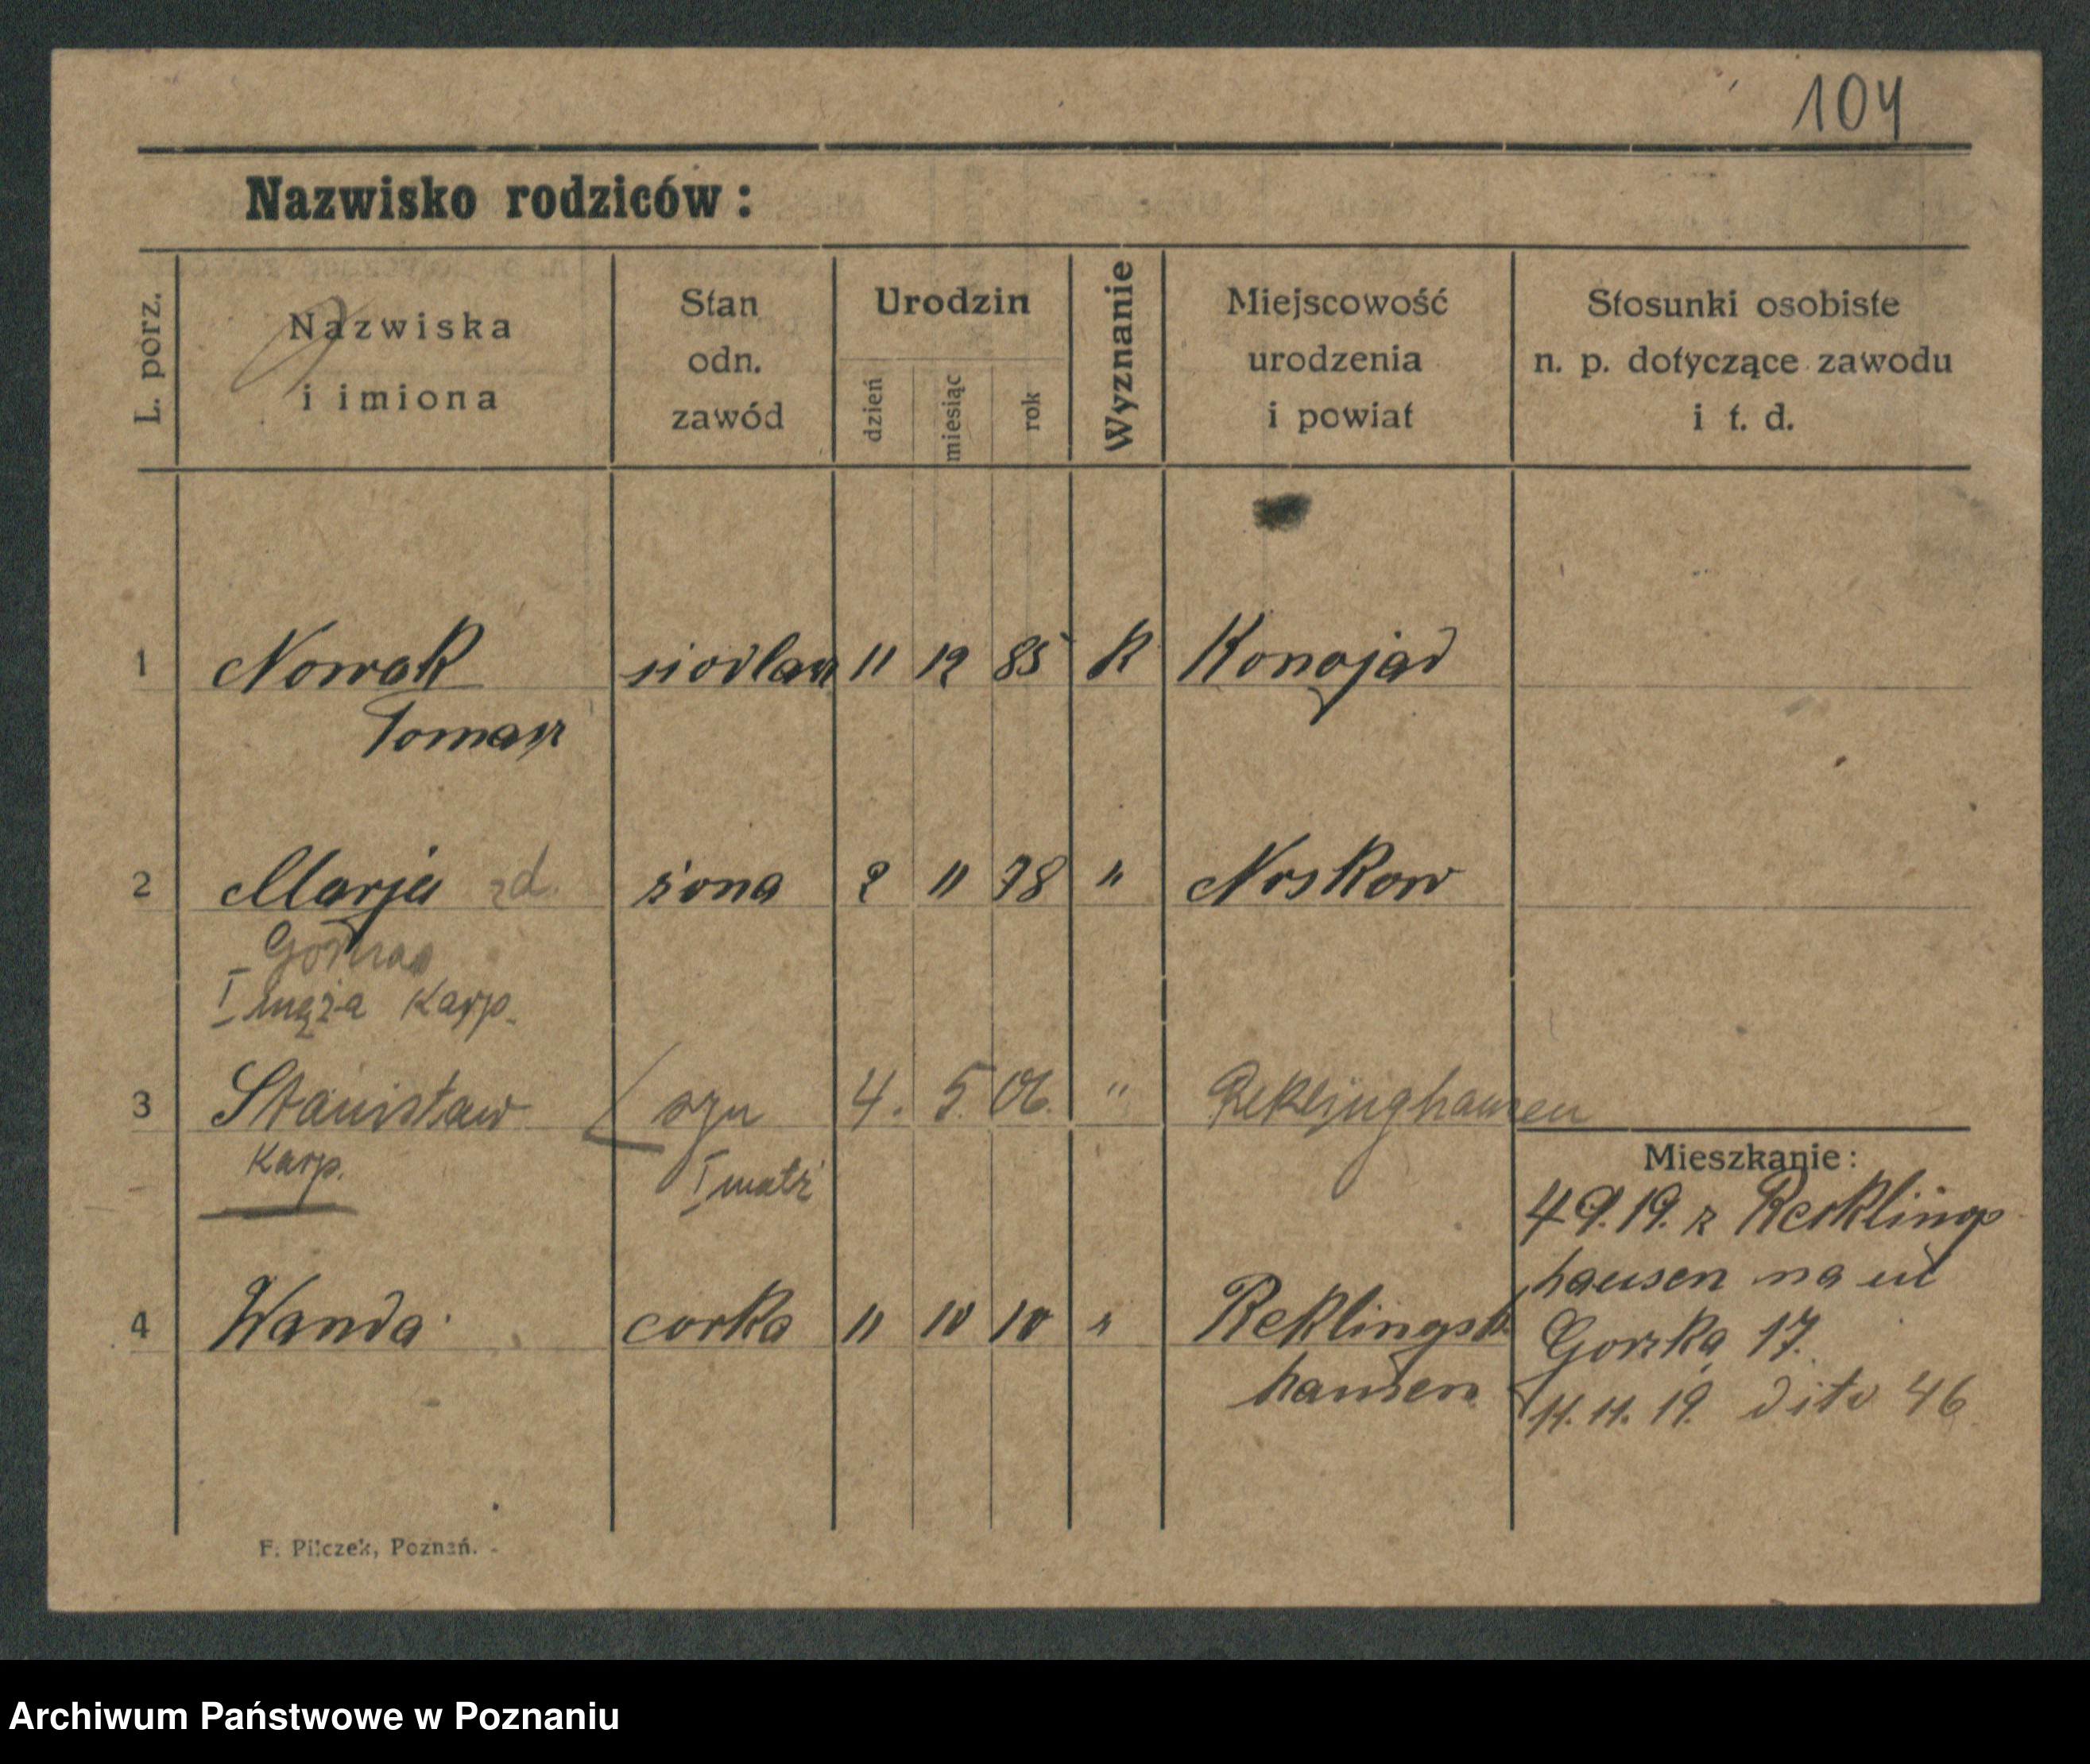 104
Nazwisko rodziców :
L. porz.
Nazwiska
i imiona
Stan
odn.
zawód
Urodzin
dzień
miesiąc
rok
Wyznanie
Miejscowość
urodzenia
i powiat
Stosunki osobiste
n. p. dotyczące zawodu
i t. d.
1 Nowak siodlarz 11 12 85 K Konojad
Tomasz
2 Marja zd. żona 2 11 78 " Noskow
I męża Karp.
3 Stanisław syn 4. 5. 06. " Reklinghausen
Karp. I matż
Mieszkanie :
4 9. 19. z Reckling
hausen na ul
4 Wanda corka 11 10 10 " Reklingsh
Gorska 17.
hausen 11. 11. 19. dito 46
F. Pilczek, Poznań.
Archiwum Państwowe w Poznaniu